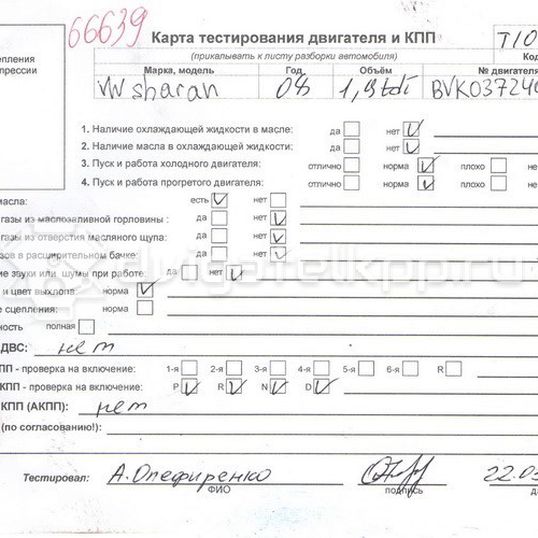 66639
Карта тестирования двигателя и КПП T10
епления прессии
(прикалывать к листу разборки автомобиля) Код
Марка, модель Год Объём № двигателя
VW sharan 08 1,9tdi BVK037240
1. Наличие охлаждающей жидкости в масле: да нет
2. Наличие масла в охлаждающей жидкости: да нет
3. Пуск и работа холодного двигателя: отлично норма плохо не
4. Пуск и работа прогретого двигателя: отлично норма плохо не
масла: есть нет
газы из маслозаливной горловины : да нет
газы из отверстия масляного щупа: да нет
зов в расширительном бачке: да нет
ие звуки или шумы при работе: да нет
и цвет выхлопа: норма
е сцепления: норма
ность полная
ДВС: нет
ПП - проверка на включение: 1-я 2-я 3-я 4-я 5-я 6-я R
КПП - проверка на включение: P R N D
КПП (АКПП): нет
(по согласованию!):
dvigatelkpp.ru
Тестировал: А.Олефиренко 22.03
ФИО подпись д